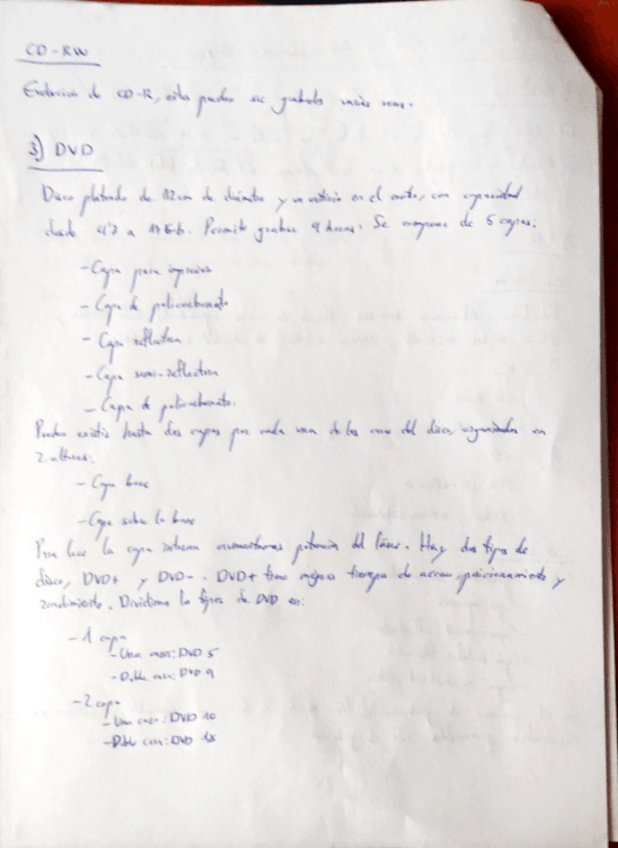 CD-RW
Evolucion de CD-R, estos pueden ser grabados varias veces.
3) DVD
Disco plateado de 12cm de diámetro y un orificio en el centro, con capacidad
desde 4'7 a 17Gb. Permite grabar 9 horas. Se compone de 5 capas:
- Capa para impresion
- Capa de policarbonato
- Capa reflectora
- Capa semi-reflectora
- Capa de policarbonato.
Pueden existir hasta dos capas por cada una de las caras del disco, organizadas en
2 alturas:
- Capa base
- Capa sobre la base
Para leer la capa aumentamos potencia del láser. Hay dos tipos de
disco, DVD+ y DVD-. DVD+ tiene mejores tiempos de acceso, posicionamiento y
rendimiento. Dividimos los tipos de DVD en:
- 1 capa
- Una cara: DVD 5
- Doble cara: DVD 9
- 2 capa
- Una cara: DVD 10
- Doble cara: DVD 18